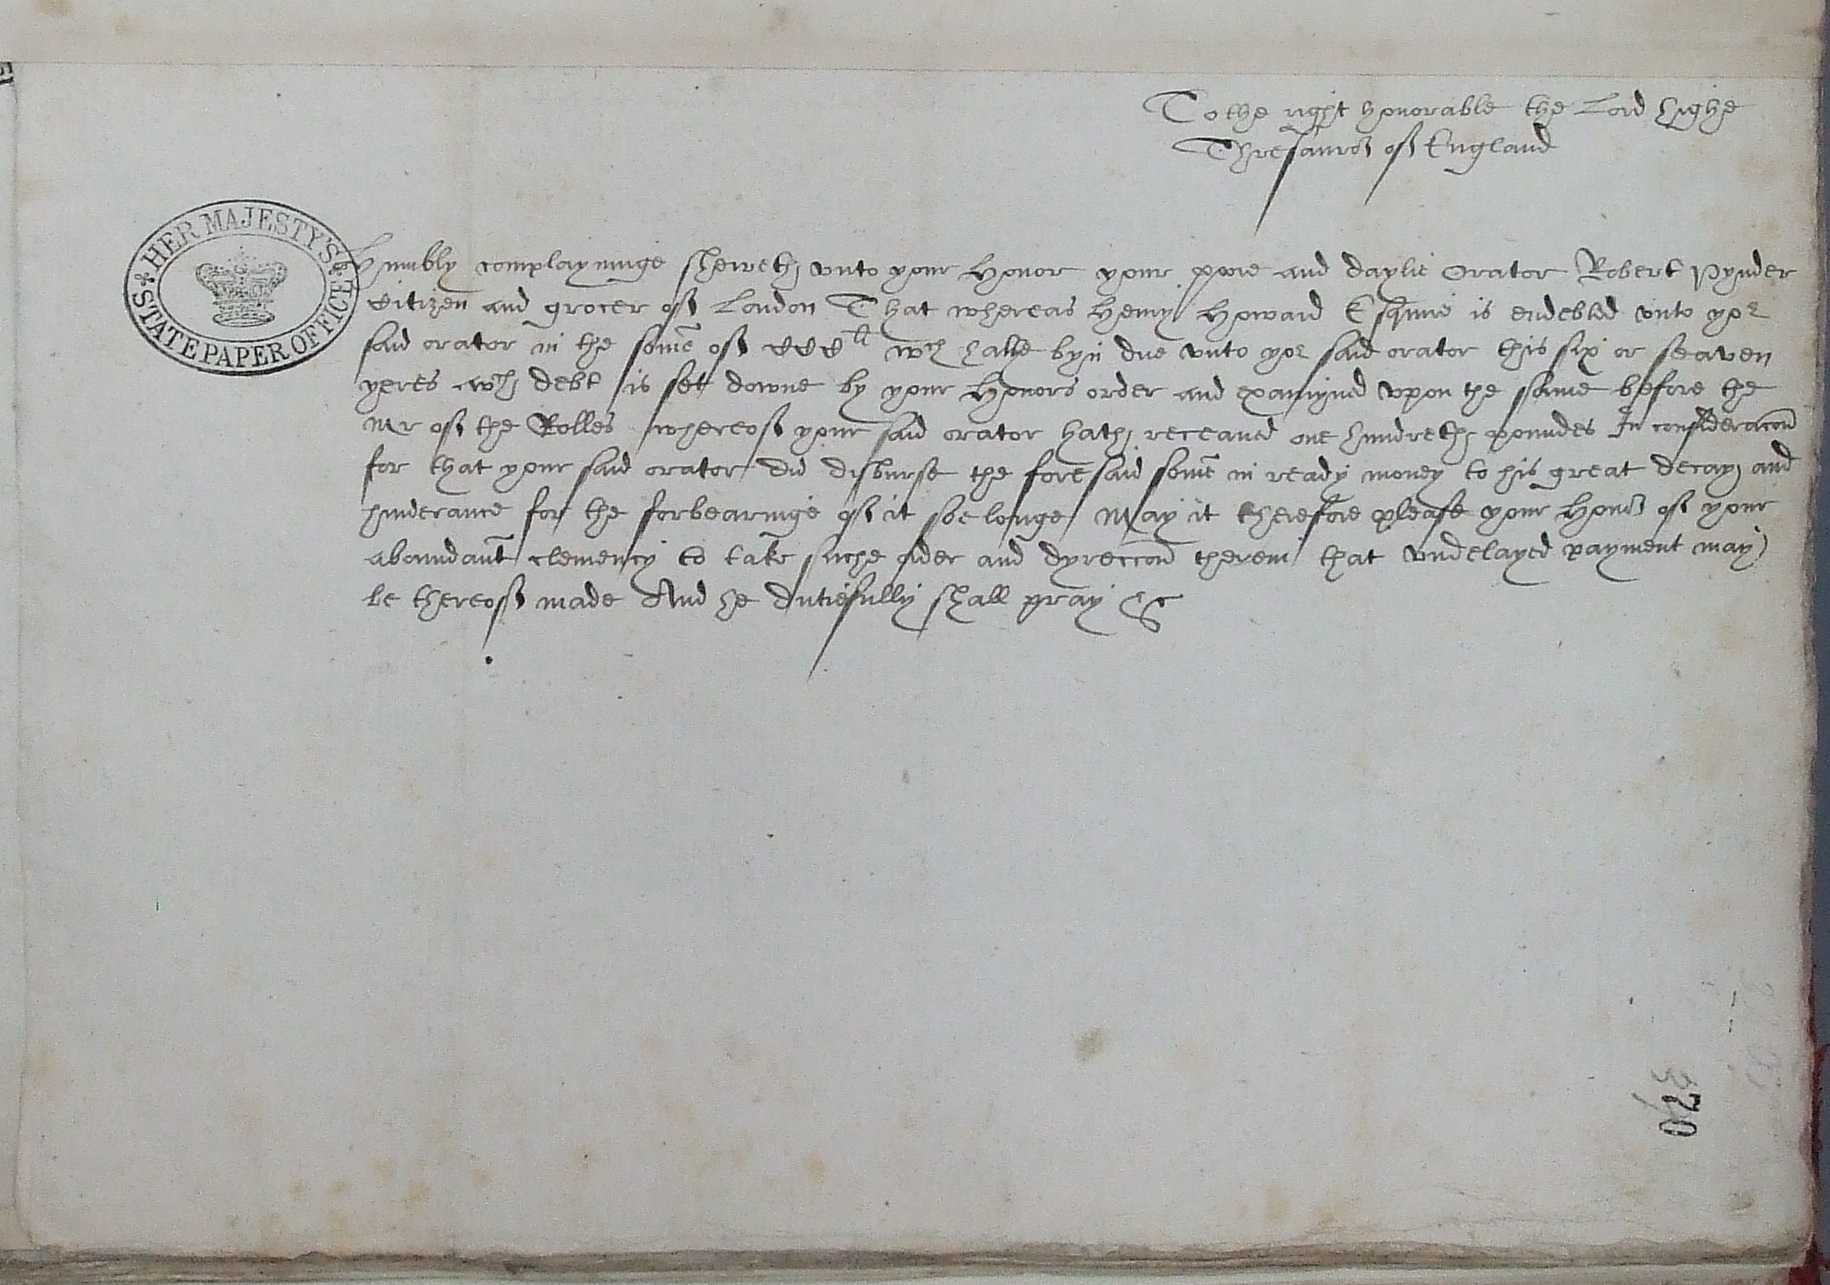 To the right honorable the Lord highe
Thresaurer of England
HER MAJESTY'S
STATE PAPER OFFICE
Humbly complayninge sheweth unto your Honor your pore and daylie Orator Robert Pynder
Citizen and grocer of London That whereas Henry Howard Esquire is endebted unto yor
said orator in the some of CCCli wch hathe byn due unto yor said orator this six or seaven
yeres wch debt is set downe by your Honors order and examyned upon the same before the
Mr of the Rolles whereof your said orator hath receaved one hundreth poundes In consideracon
for that your said orator did disburse the foresaid some in ready money to his great decay and
hinderance for the forbearinge of it soe longe May it therefore please your Honor of your
aboundant clemency to take suche order and dyreccon therein that undelayed payment may
be thereof made And he dutiefully shall pray &c
370